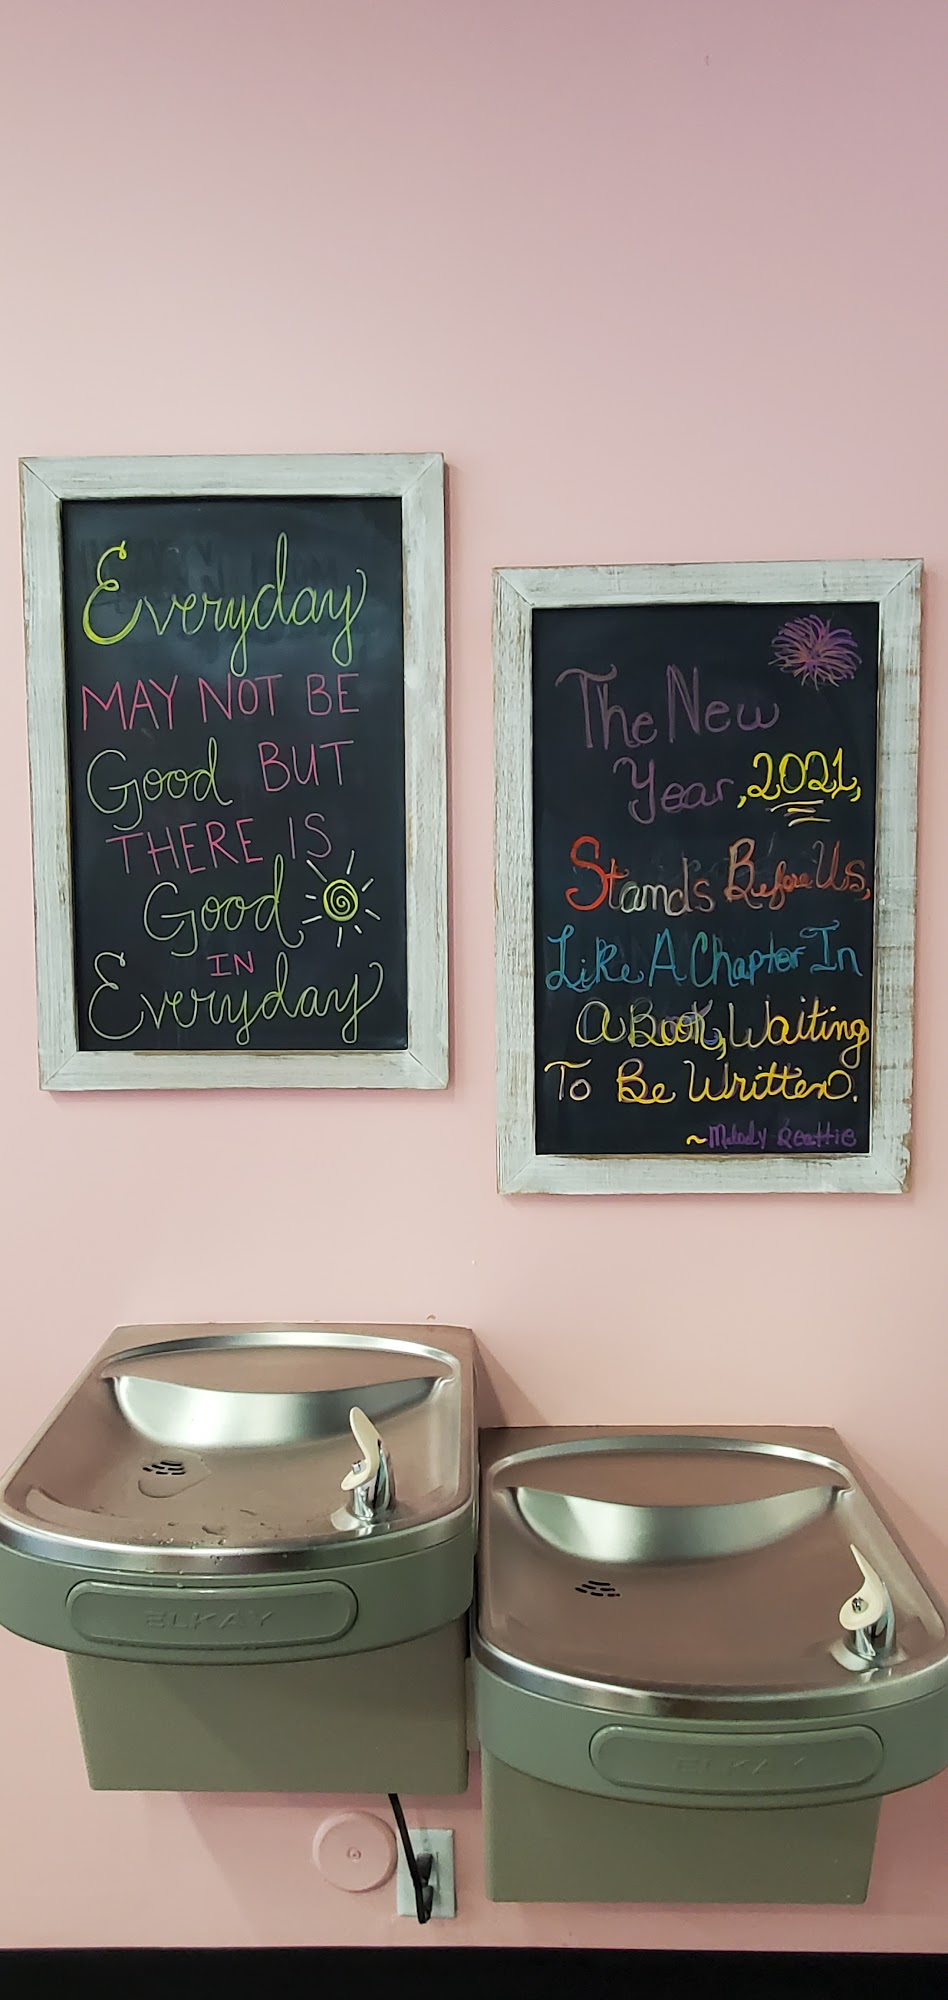 Everyday
MAY NOT BE
Good BUT
THERE IS
Good
IN
Everyday
The New
Year, 2021,
Stands Before Us,
Like A Chapter In
A Book, Waiting
To Be Written.
~Melody Beattie
ELKAY
ELKAY